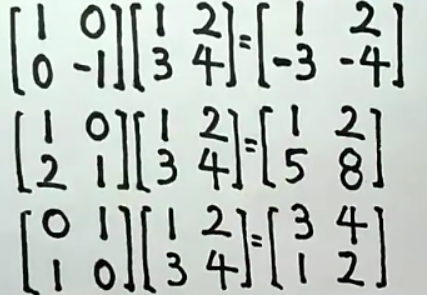 [1 0; 0 -1][1 2; 3 4]=[1 2; -3 -4]
[1 0; 2 1][1 2; 3 4]=[1 2; 5 8]
[0 1; 1 0][1 2; 3 4]=[3 4; 1 2]